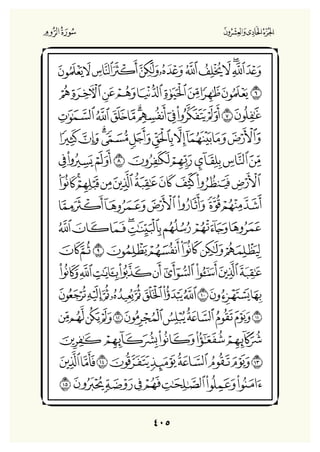 الجزء الحادي والعشرون سورة الروم
وَعْدَ ٱللَّهِ لَا يُخْلِفُ ٱللَّهُ وَعْدَهُۥ وَلَٰكِنَّ أَكْثَرَ ٱلنَّاسِ لَا يَعْلَمُونَ
٦ يَعْلَمُونَ ظَٰهِرًا مِّنَ ٱلْحَيَوٰةِ ٱلدُّنْيَا وَهُمْ عَنِ ٱلْءَاخِرَةِ هُمْ
غَٰفِلُونَ ٧ أَوَلَمْ يَتَفَكَّرُوا۟ فِىٓ أَنفُسِهِم مَّا خَلَقَ ٱللَّهُ ٱلسَّمَٰوَٰتِ
وَٱلْأَرْضَ وَمَا بَيْنَهُمَآ إِلَّا بِٱلْحَقِّ وَأَجَلٍ مُّسَمًّى وَإِنَّ كَثِيرًا
مِّنَ ٱلنَّاسِ بِلِقَآئِ رَبِّهِمْ لَكَٰفِرُونَ ٨ أَوَلَمْ يَسِيرُوا۟ فِى
ٱلْأَرْضِ فَيَنظُرُوا۟ كَيْفَ كَانَ عَٰقِبَةُ ٱلَّذِينَ مِن قَبْلِهِمْ كَانُوٓا۟
أَشَدَّ مِنْهُمْ قُوَّةً وَأَثَارُوا۟ ٱلْأَرْضَ وَعَمَرُوهَآ أَكْثَرَ مِمَّا
عَمَرُوهَا وَجَآءَتْهُمْ رُسُلُهُم بِٱلْبَيِّنَٰتِ فَمَا كَانَ ٱللَّهُ
لِيَظْلِمَهُمْ وَلَٰكِن كَانُوٓا۟ أَنفُسَهُمْ يَظْلِمُونَ ٩ ثُمَّ كَانَ
عَٰقِبَةَ ٱلَّذِينَ أَسَٰٓـُٔوا۟ ٱلسُّوٓأَىٰٓ أَن كَذَّبُوا۟ بِـَٔايَٰتِ ٱللَّهِ وَكَانُوا۟
بِهَا يَسْتَهْزِءُونَ ١٠ ٱللَّهُ يَبْدَؤُا۟ ٱلْخَلْقَ ثُمَّ يُعِيدُهُۥ ثُمَّ إِلَيْهِ تُرْجَعُونَ
١١ وَيَوْمَ تَقُومُ ٱلسَّاعَةُ يُبْلِسُ ٱلْمُجْرِمُونَ ١٢ وَلَمْ يَكُن لَّهُم مِّن
شُرَكَآئِهِمْ شُفَعَٰٓؤُا۟ وَكَانُوا۟ بِشُرَكَآئِهِمْ كَٰفِرِينَ
١٣ وَيَوْمَ تَقُومُ ٱلسَّاعَةُ يَوْمَئِذٍ يَتَفَرَّقُونَ ١٤ فَأَمَّا ٱلَّذِينَ
ءَامَنُوا۟ وَعَمِلُوا۟ ٱلصَّٰلِحَٰتِ فَهُمْ فِى رَوْضَةٍ يُحْبَرُونَ ١٥
٤٠٥